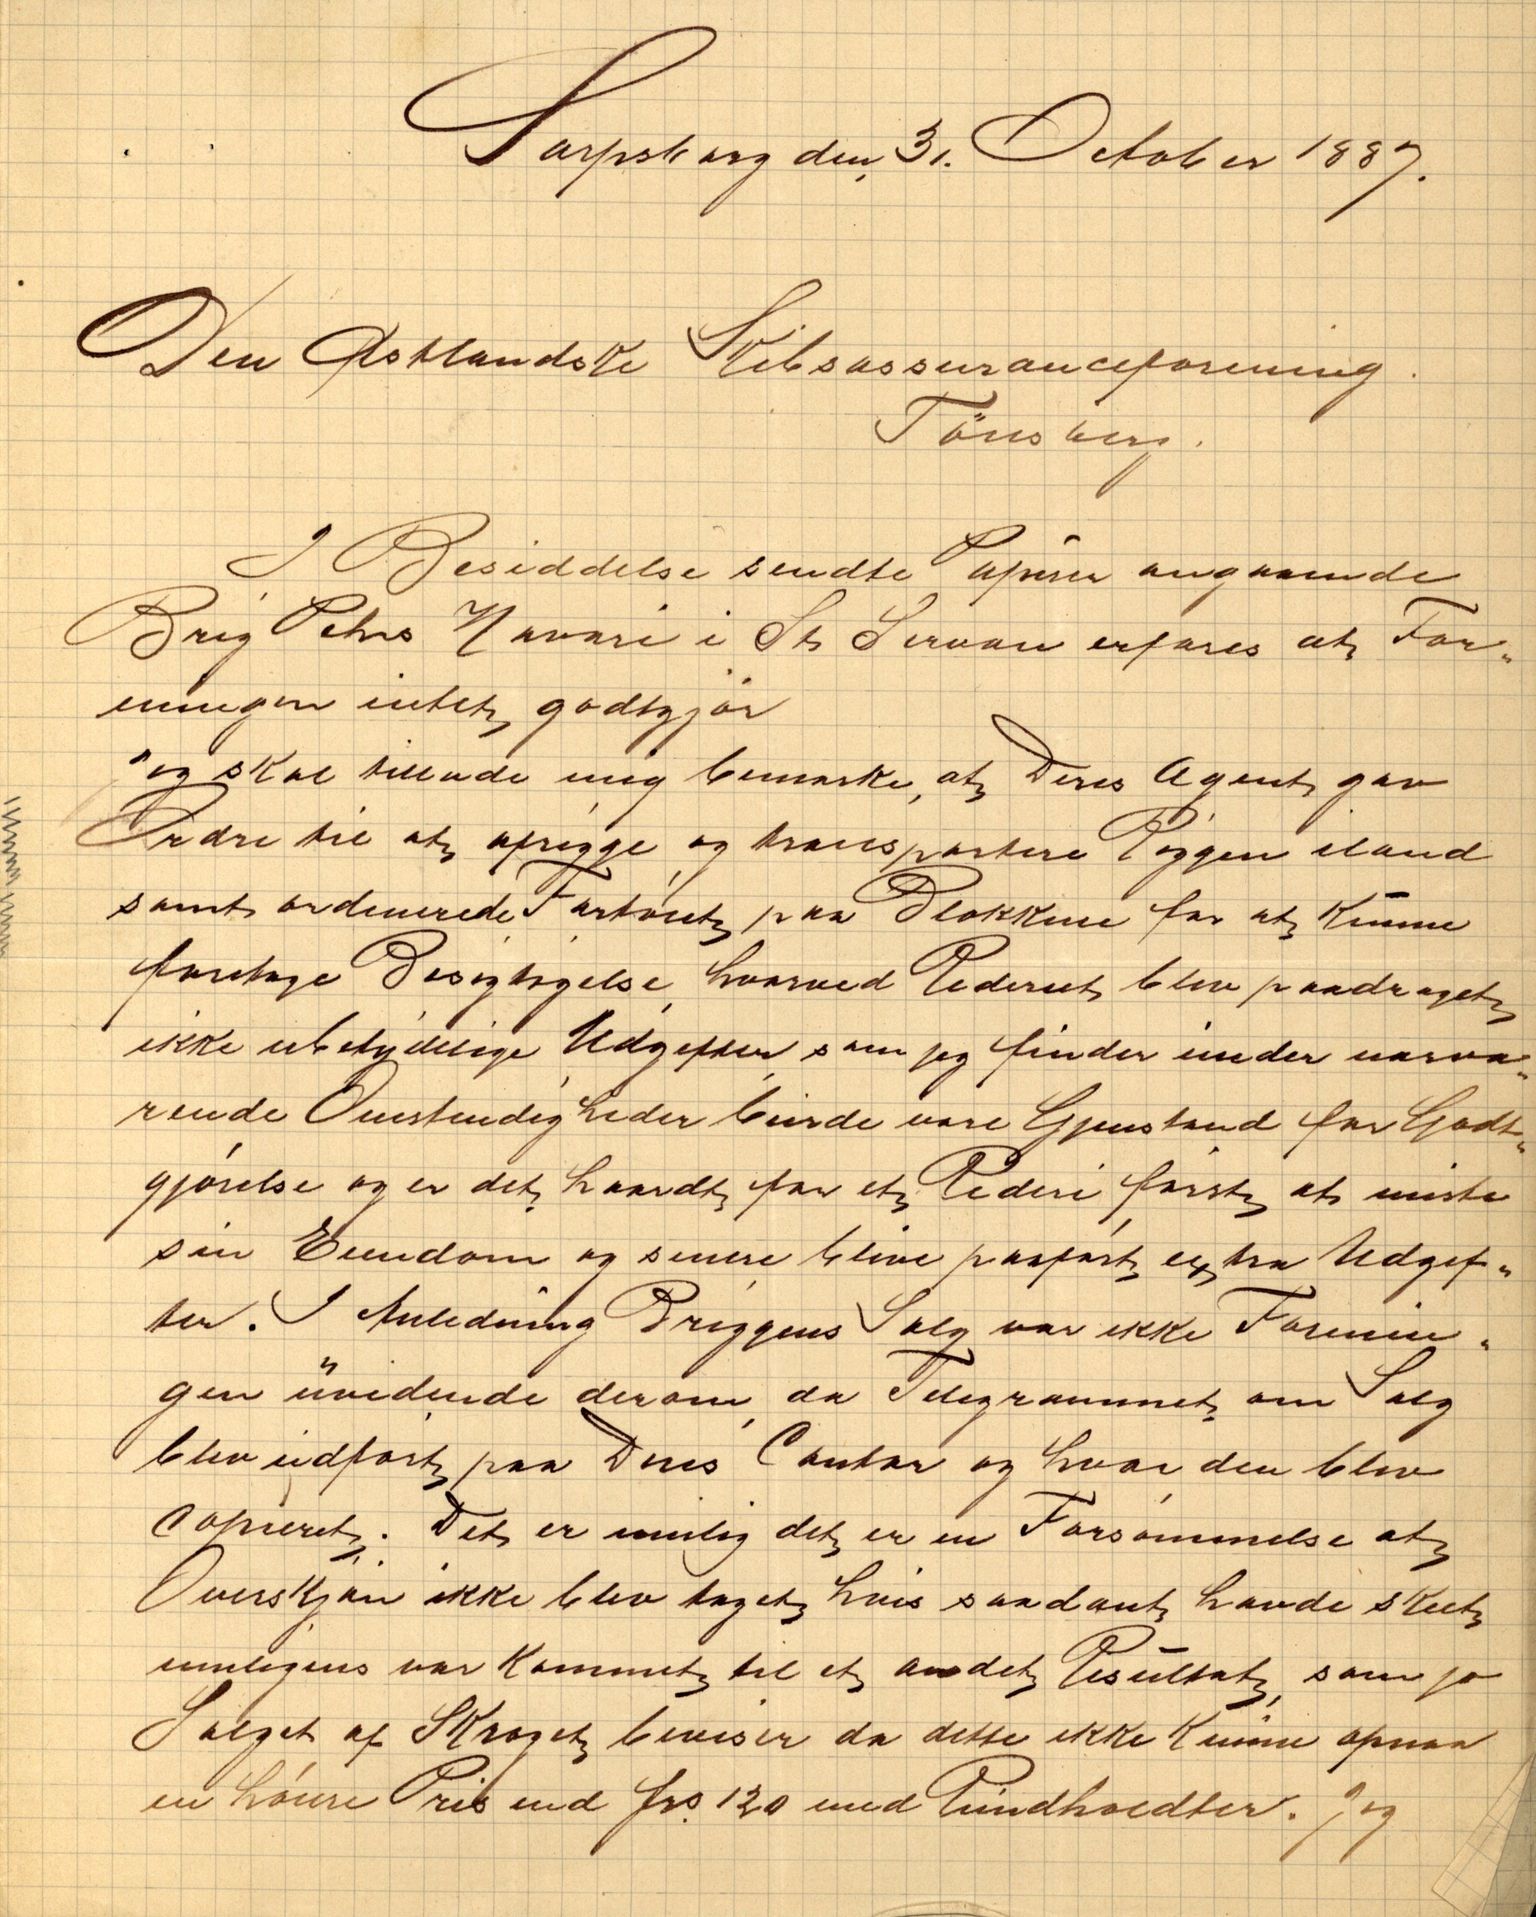 Sarpsborg den 31. October 1887.
Den Østlandske Skibsassuranceforening.
Tönsberg.
I Besiddelse sendte Papirer angaaende
Brig Petrs Havari i St Servan erfares at For-
eningen intet godtgjör
Jeg skal tillade mig bemærke, at Deres Agent gav
Ordre til at afrigge og transportere Riggen iland
samt ordenerede Fartöiet paa Blokkene for at kunne
foretage Besigtigelse, hvorved Rederiet blev paadraget
ikke ubetydelige Udgifter som jeg finder under nærvæ-
rende Omstendigheder burde være Gjenstand for Godt-
gjörelse og er det haardt for et Rederi først at miste
sin Eiendom og senere blive paaført extra Udgif-
ter. I Anledning Briggens Salg var ikke Forenin-
gen uvidende derom, da Telegrammet om Salg
blev udfört paa Deres Contor og hvor den blev
copieret. Det er mulig det er en Forsömmelse at
Overskjön ikke blev taget, hvis saadant havde skeet
muligens var kommet til et andet Resultat, som jo
Salget af Skroget beviser da dette ikke kunne opnaa
en höiere Pris end frs 120 med Rundholdter. Jeg